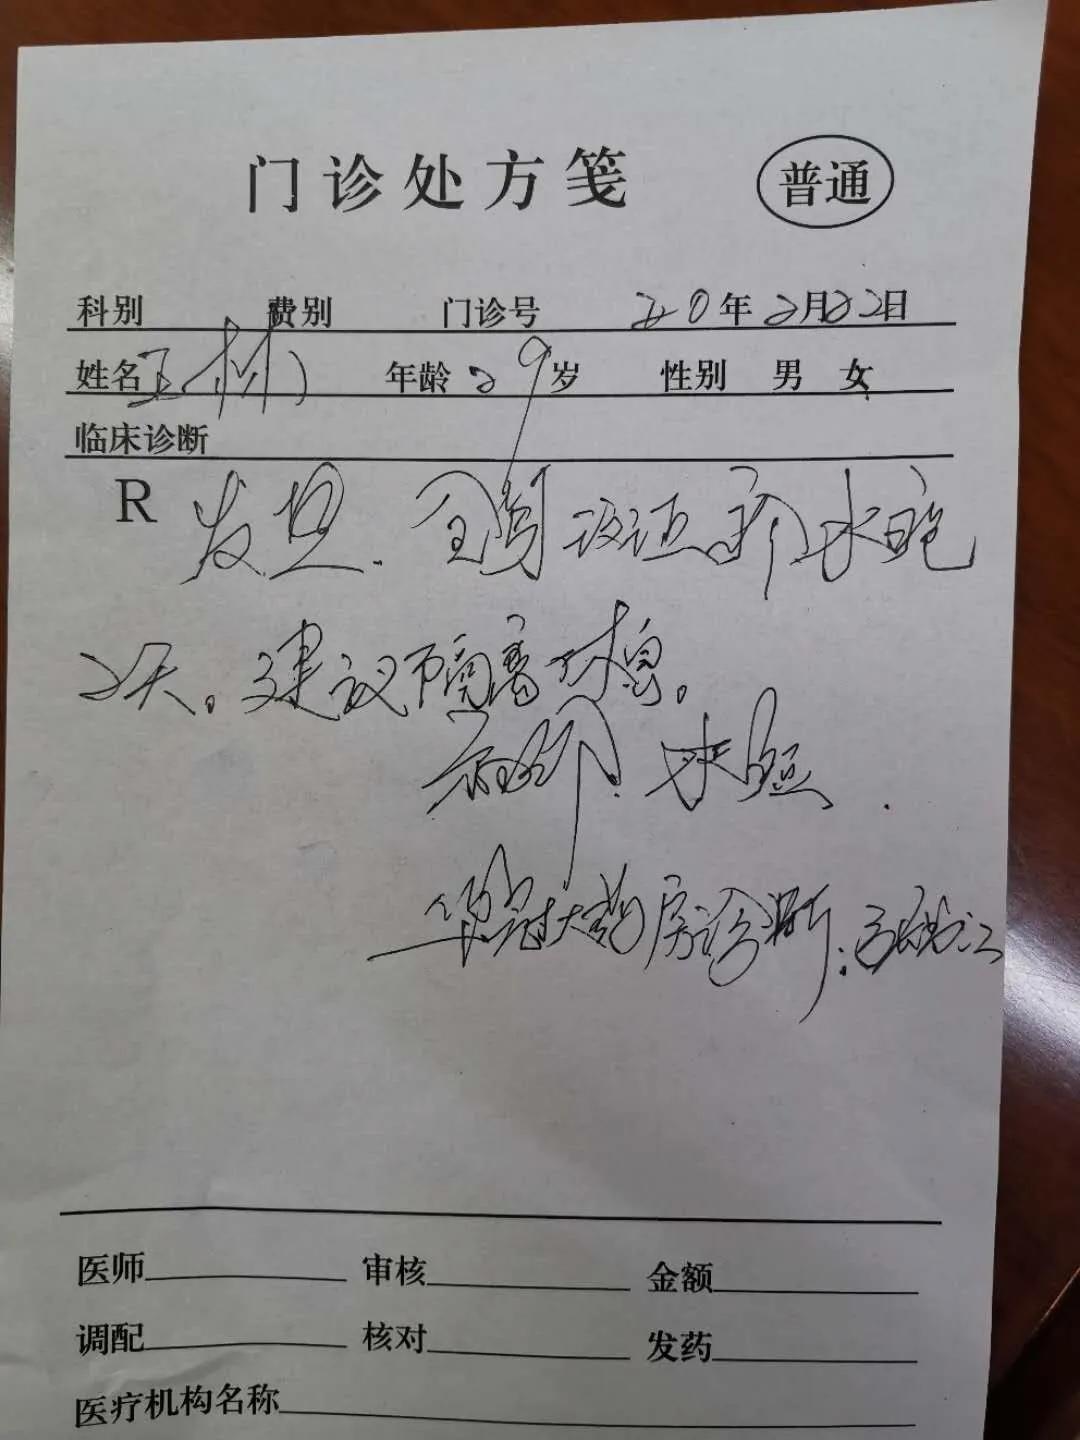 门诊处方笺 普通
科别 费别 门诊号 20年2月22日
姓名 王林 年龄 29岁 性别 男 女
临床诊断
R 发热. 全身 水疱
2天。建议 隔离休息。
水痘.
华冠大药房诊断:
医师 审核 金额
调配 核对 发药
医疗机构名称